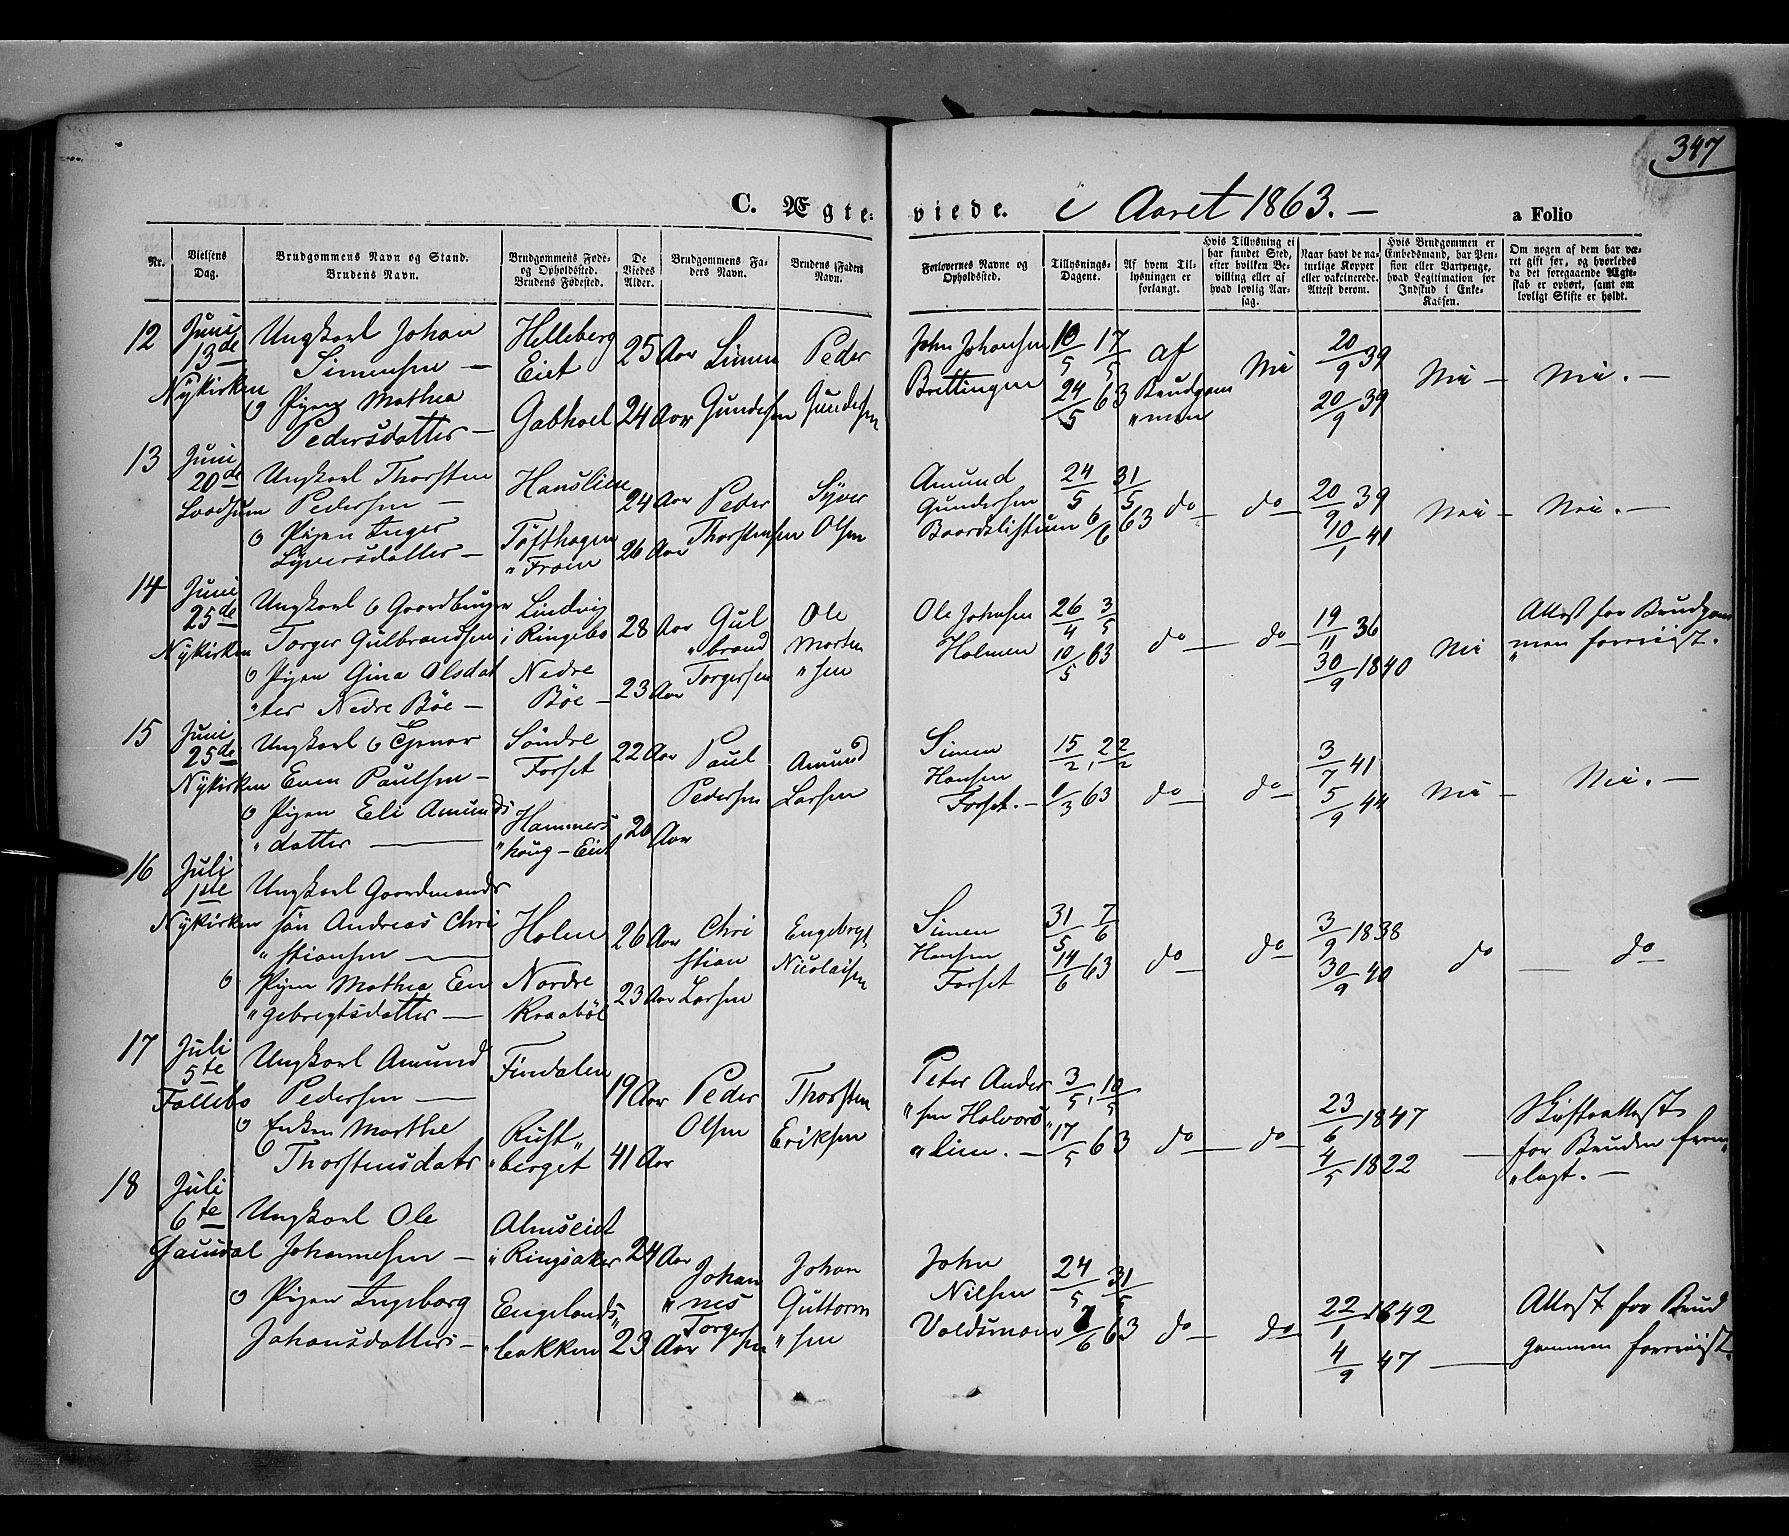 347
C. Ægteviede. i Aaret 1863. —
a Folio
Nr.
Vielsens Dag.
Brudgommens Navn og Stand. Brudens Navn.
Brudgommens Føde- og Opholdssted. Brudens Fødested.
De Viedes Alder.
Brudgommens Faders Navn.
Brudens Faders Navn.
Forlovernes Navne og Opholdssted.
Tillysnings-Dagene.
Af hvem Tillysningen er forlangt.
Hvis Tillysning ei har fundet Sted, efter hvilken Bevilling eller af hvad lovlig Aarsag.
Naar havt de naturlige Kopper eller vakcinerede. Attest derom.
Hvis Brudgommen er Embedsmand, har Pension eller Vartpenge, hvad Legitimation for Indskud i Enke-Kassen.
Om nogen af dem har været gift før, og hvorledes da det foregaaende Ægteskab er ophørt, samt om lovligt Skifte er holdt.
12
Juni 13de Nykirken
Ungkarl Johan
Simensen —
o Pigen Mathea
Pedersdatter —
Helleberg
Eiet
Gabhoel
25 Aar
24 Aar
Simen
Gundersen
Peder
Gundersen
John Johansen
Brettingen
10/5 17/5
24/5 63
af
Brudgom
"men
Nei
20/9 39
20/9 39
Nei —
Nei. —
13
Juni 20de
Ungkarl Thorsten
Pedersen —
o Pigen Inger
Syversdatter —
Hauslien
Tofthagen
" Fron
24 Aar
26 Aar
Peder
Thorstensen
Syver
Olsen
Amund
Gundersen
6/6 63
24/5 31/5
do —
do —
20/9 39
10/1 41
Nei —
Nei. —
14
Juni 25de Nykirken
Ungkarl o Gaardbruger
Torger Gulbrandsen
o Pigen Gina Olsdat
"ter Nedre Bøe —
Lindvig
i Ringebo
Nedre
Bøe —
28 Aar
23 Aar
Gul
"brand
Torgersen
Ole
Morten
"sen
Ole Johnsen
Holmen
26/4 3/5
10/5 63
do —
do
19/11 36
30/9 1840
Nei
Attest for Brudgom
"men foreviist.
15
Juni 25de Nykirken
Ungkarl o
Even Paulsen —
o Pigen Eli Amunds
"datter —
Søndre
Forset
Hammers
"houg – Eiet
22 Aar
20 Aar
Paul
Pedersen
Amund
Larsen
Simen
Hansen
Forset. —
15/2, 22/2
1/3 63
do —
do —
3/7 41
5/9 44
Nei —
Nei. —
16
Juli 1ste Nykirken
Ungkarl Gaardmands
søn Andreas Chri
"stiansen —
o Pigen Mathea En
"gebregtsdatter —
Holen
Nordre
Kraabøl
26 Aar
23 Aar
Chri
stian
Larsen
Engebregt
Nicolaisen
Simen
Hansen
Forset
31/5 7/6
14/6 63
do —
do —
3/9 1838
30/9 40
do —
do —
17
Juli 5te Follebo
Ungkarl Amund
Pedersen —
o Enken Marthe
Thorstensdatr
Findalen
Rust "
"berget
19 Aar
41 Aar
Peder
Olsen
Thorsten
Eriksen
Peter Ander
"sen Halvors
"lien. —
3/5, 10/5
17/5 63
do —
do —
23/6 1847
4/5 1822
Skifteattest
for Bruden frem
"lagt. —
18
Juli 6te Gausdal
Ungkarl Ole
Johannesen —
o Pigen Ingeborg
Johansdatter —
Almseiet
i Ringsaker
Engelands "
"bakken
24 Aar
23 Aar
Johan
"nes
Torgersen
Johan
Guttorm
"sen
John
Nilsen
24/5 31/5
7/6 63
do —
do —
22/1 1842
4/9 47 —
Attest for Brud
gommen foreviist.